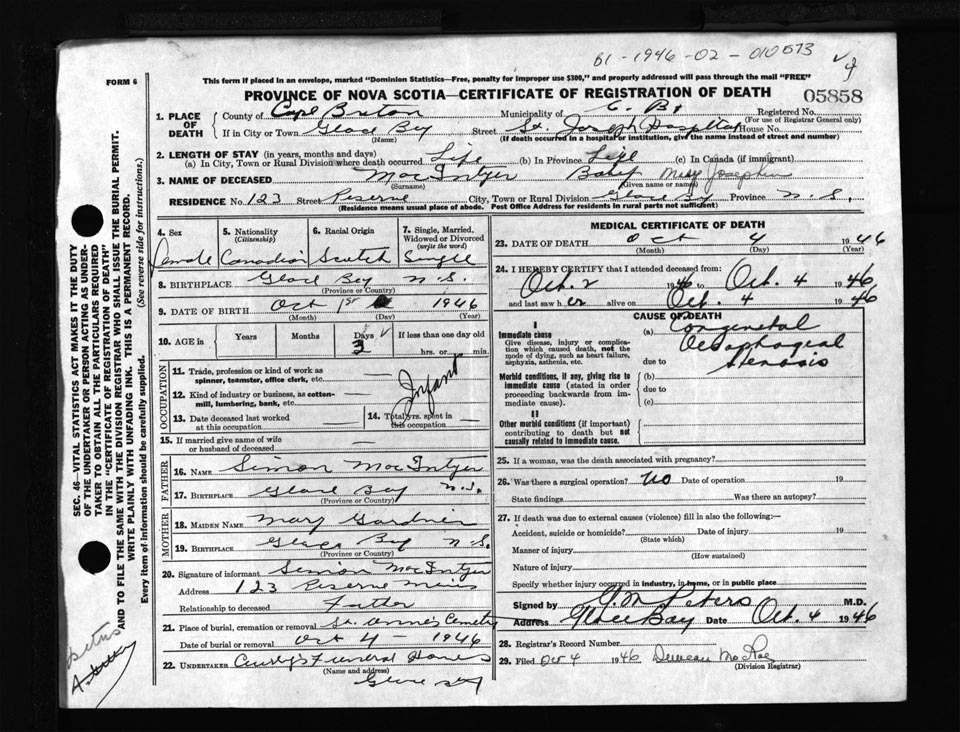 61-1946-02-010573
FORM 6
This form if placed in an envelope, marked "Dominion Statistics—Free, penalty for improper use $300," and properly addressed will pass through the mail "FREE"
PROVINCE OF NOVA SCOTIA—CERTIFICATE OF REGISTRATION OF DEATH
05858
1. PLACE OF DEATH
County of Cape Breton Municipality of C. B. Registered No.
(For use of Registrar General only)
If in City or Town Glace Bay Street St. Joseph Hospital House No.
(Name) (If death occurred in a hospital or institution, give the name instead of street and number)
2. LENGTH OF STAY (in years, months and days)
(a) In City, Town or Rural Division where death occurred Life (b) In Province Life (c) In Canada (if immigrant)
3. NAME OF DECEASED MacIntyer Baby Mary Josephine
(Surname) (Given name or names)
RESIDENCE No. 123 Street Reserve City, Town or Rural Division Glace Bay Province N.S.
(Residence means usual place of abode. Post Office Address for residents in rural parts not sufficient)
4. Sex Female
5. Nationality (Citizenship) Canadian
6. Racial Origin Scotch
7. Single, Married, Widowed or Divorced (write the word) Single
8. BIRTHPLACE Glace Bay N.S.
(Province or Country)
9. DATE OF BIRTH Oct 1st 1946
(Month) (Day) (Year)
10. AGE in Years Months Days 3 If less than one day old
hrs. or min.
OCCUPATION
11. Trade, profession or kind of work as spinner, teamster, office clerk, etc.
Infant
12. Kind of industry or business, as cotton-mill, lumbering, bank, etc.
13. Date deceased last worked at this occupation
14. Total yrs. spent in this occupation
15. If married give name of wife or husband of deceased
FATHER
16. NAME Simon MacIntyer
17. BIRTHPLACE Glace Bay N.S.
(Province or Country)
MOTHER
18. MAIDEN NAME Mary Gardner
19. BIRTHPLACE Glace Bay N.S.
(Province or Country)
20. Signature of informant Simon MacIntyer
Address 123 Reserve
Relationship to deceased Father
21. Place of burial, cremation or removal St. Anne's Cemetry
Date of burial or removal Oct 4 - 1946
22. UNDERTAKER Curry's Funeral Homes
(Name and address)
Glace Bay
MEDICAL CERTIFICATE OF DEATH
23. DATE OF DEATH Oct 4 1946
(Month) (Day) (Year)
24. I HEREBY CERTIFY that I attended deceased from:
Oct. 2 1946 to Oct. 4 1946
and last saw her alive on Oct. 4 1946
CAUSE OF DEATH
I
Immediate cause
Give disease, injury or complication which caused death, not the mode of dying, such as heart failure, asphyxia, asthenia, etc.
(a) Congenital
Oesophageal
due to Stenosis
Morbid conditions, if any, giving rise to immediate cause (stated in order proceeding backwards from immediate cause).
(b)
due to
(c)
II
Other morbid conditions (if important) contributing to death but not causally related to immediate cause.
25. If a woman, was the death associated with pregnancy?
26. Was there a surgical operation? No Date of operation 19
State findings Was there an autopsy?
27. If death was due to external causes (violence) fill in also the following:—
Accident, suicide or homicide? Date of injury 19
(State which)
Manner of injury
(How sustained)
Nature of injury
Specify whether injury occurred in industry, in home, or in public place
Signed by M.D.
Address Glace Bay Date Oct. 4 1946
28. Registrar's Record Number
29. Filed Oct 4 1946 Duncan McRae
(Division Registrar)
SEC. 46—VITAL STATISTICS ACT MAKES IT THE DUTY
OF THE UNDERTAKER OR PERSON ACTING AS UNDER-
TAKER TO OBTAIN ALL THE PARTICULARS REQUIRED
IN THE "CERTIFICATE OF REGISTRATION OF DEATH"
AND TO FILE THE SAME WITH THE DIVISION REGISTRAR WHO SHALL ISSUE THE BURIAL PERMIT.
WRITE PLAINLY WITH UNFADING INK. THIS IS A PERMANENT RECORD.
Every item of information should be carefully supplied. (See reverse side for instructions.)